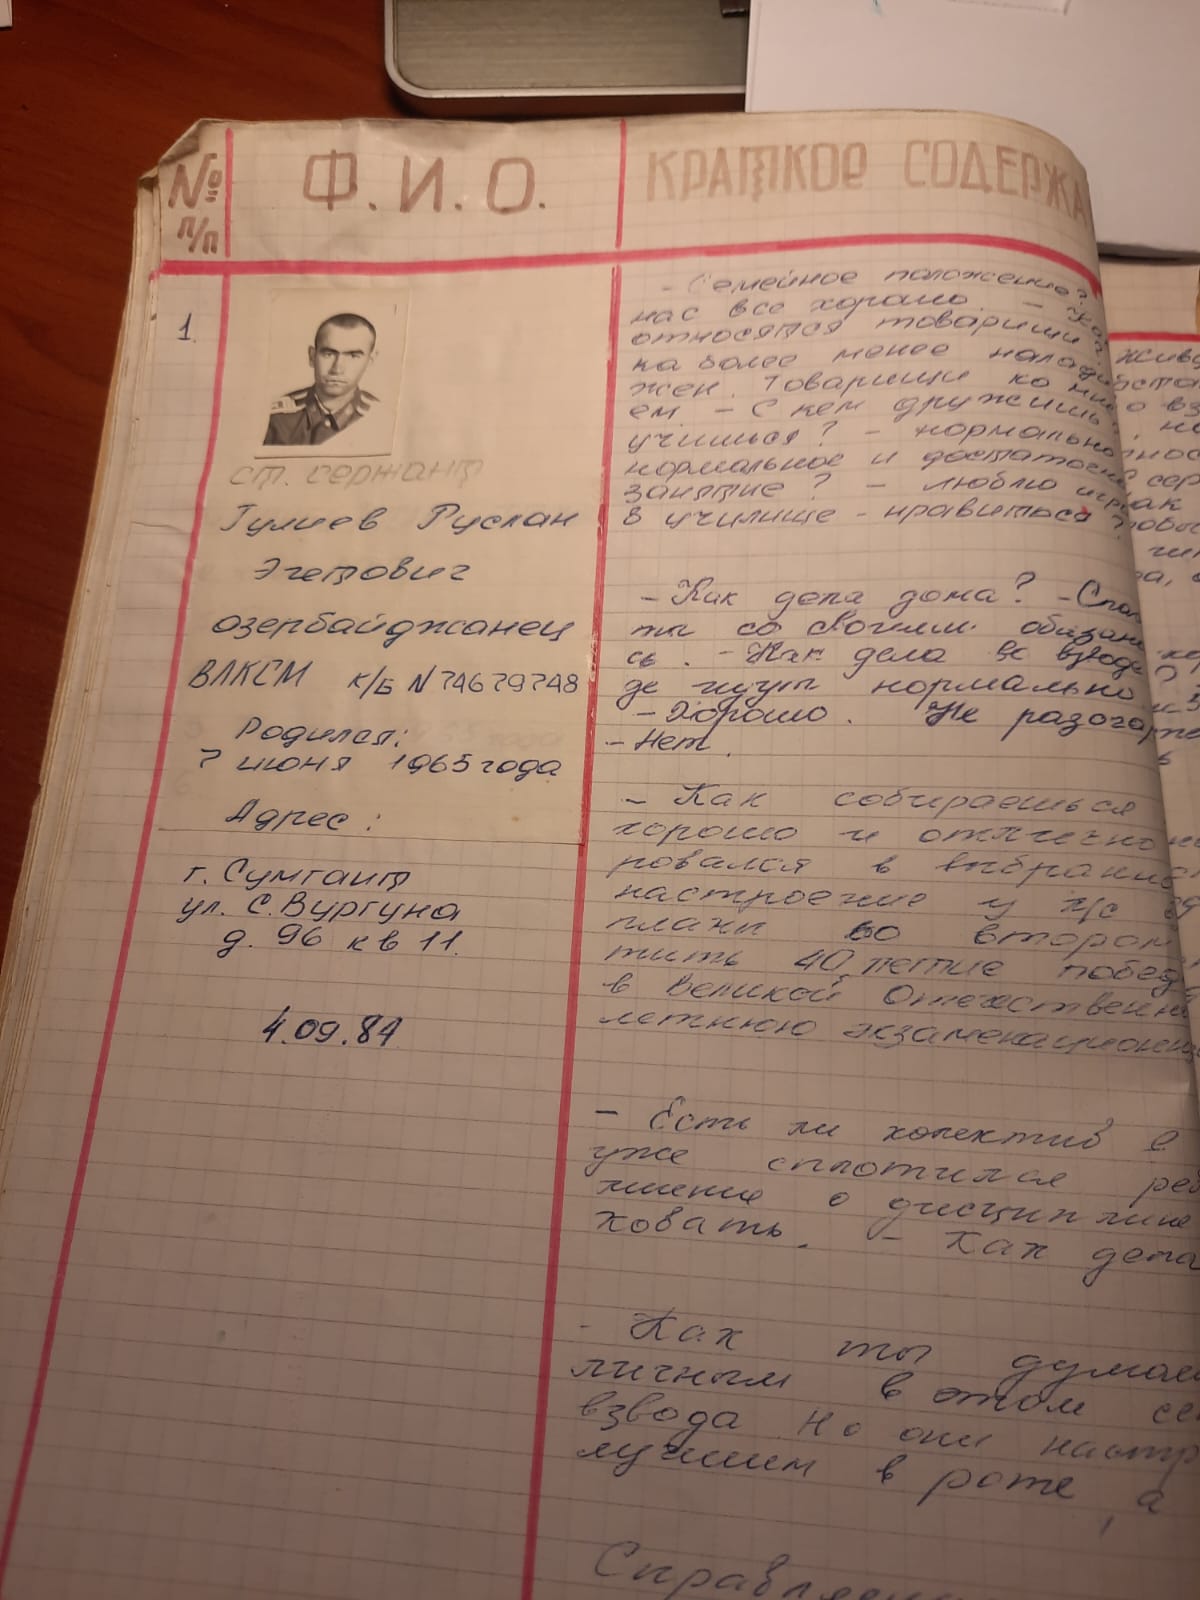 № п/п
Ф.И.О.
КРАТКОЕ СОДЕРЖА
1.
ст. сержант
Гулиев Руслан
озербайджанец
ВЛКСМ к/б N 74679748
Родился:
7 июня 1965 года
Адрес:
г. Сумгаит
ул. С. Вургуна
д. 96 кв 11.
4.09.84
- Семейное положение?
нас все хорошо. - Как
относятся товарищи
ка более менее налади
жен. Товарищи ко мне
ем - С кем дружишь?
учишься? - нормально
нормальное и достаточн
занятие? - люблю игр
В училище - нравиться?
- Как дела дома? - Спа
ты со своими обязан
сь. - Как дела во взводе?
де идут нормально
- Хорошо. Не разочар
- Нет.
- Как собираешься
хорошо и отлично
ровался в выбранно
настроение у л/с
планы во втором
тить 40 летие побед
в Великой Отечественн
летнюю экзаменационн
- Есть ли колектив в
уже сплотился ре
мнение о дисциплине
ховать. - Как дела
- Как ты думае
личным в этом се
взвода Но они настр
лучшим в роте, а
Справляе